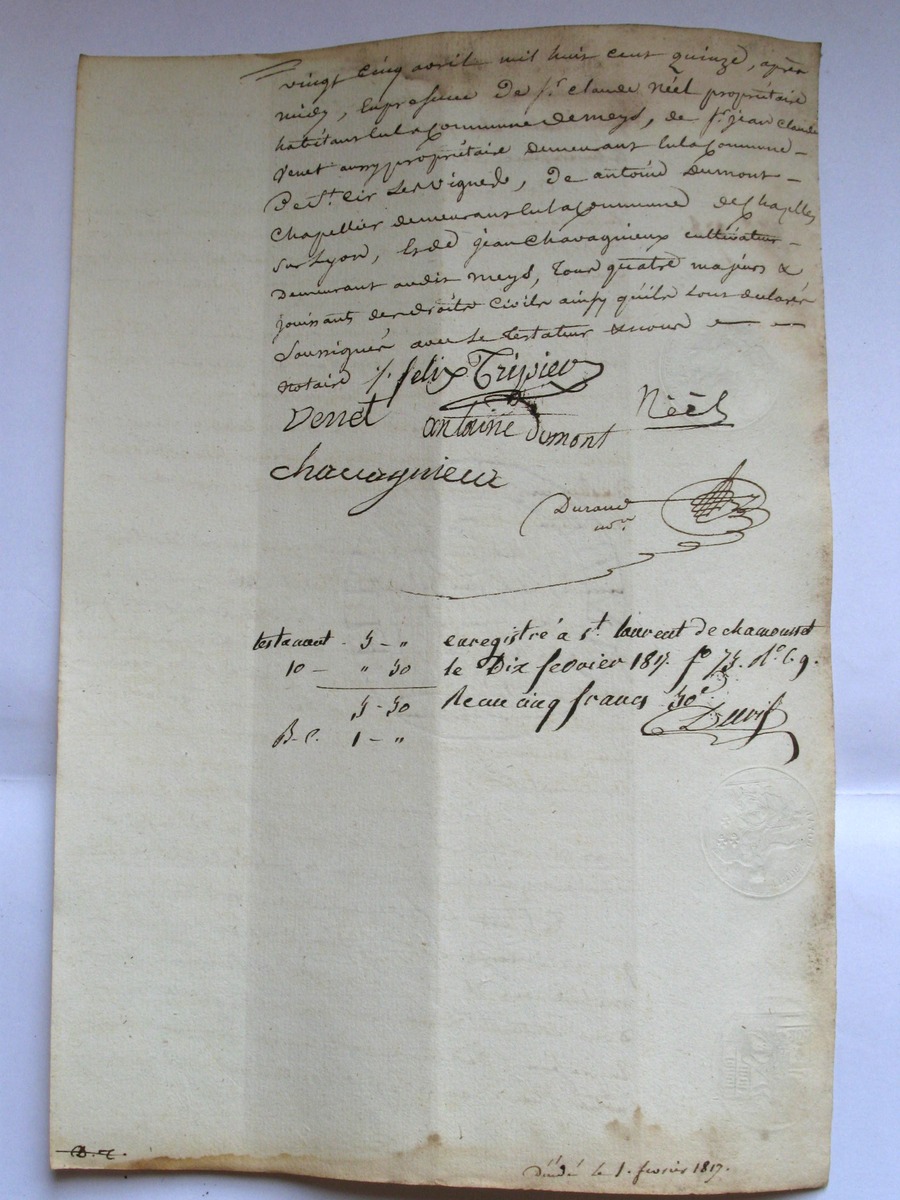 vingt cinq avril mil huit cent quinze, après
midy, En presence De s.r claude Néel propriétaire
habitant En la Commune de meys, de s.r jean claude
Venet aussy propriétaire demeurant En la Commune
De St. Cir Les vignes, De antoine Dumont
Chapellier demeurant En la Commune de Chapelle
Sur Lyon, Et de jean Chavagnieux cultivateur
Demeurant audit meys, tous quatre majeurs &
jouissants des droits Civils ainsy qu'ils L'ont déclaré
Soussignés avec Le testateur & nous
Notaire /. felix Tripier
Venet antoine Dumont Néel
chavagnieux
Durand
no.re
testament - 5 - " enregistré à St. laurent de chamousset
10 - " 50 le Dix fevrier 1817. fo 73. Ro C 9.
5 - 50 Reçu cinq francs 50c
B.C. 1 - "
Décédé le 1. fevrier 1817.